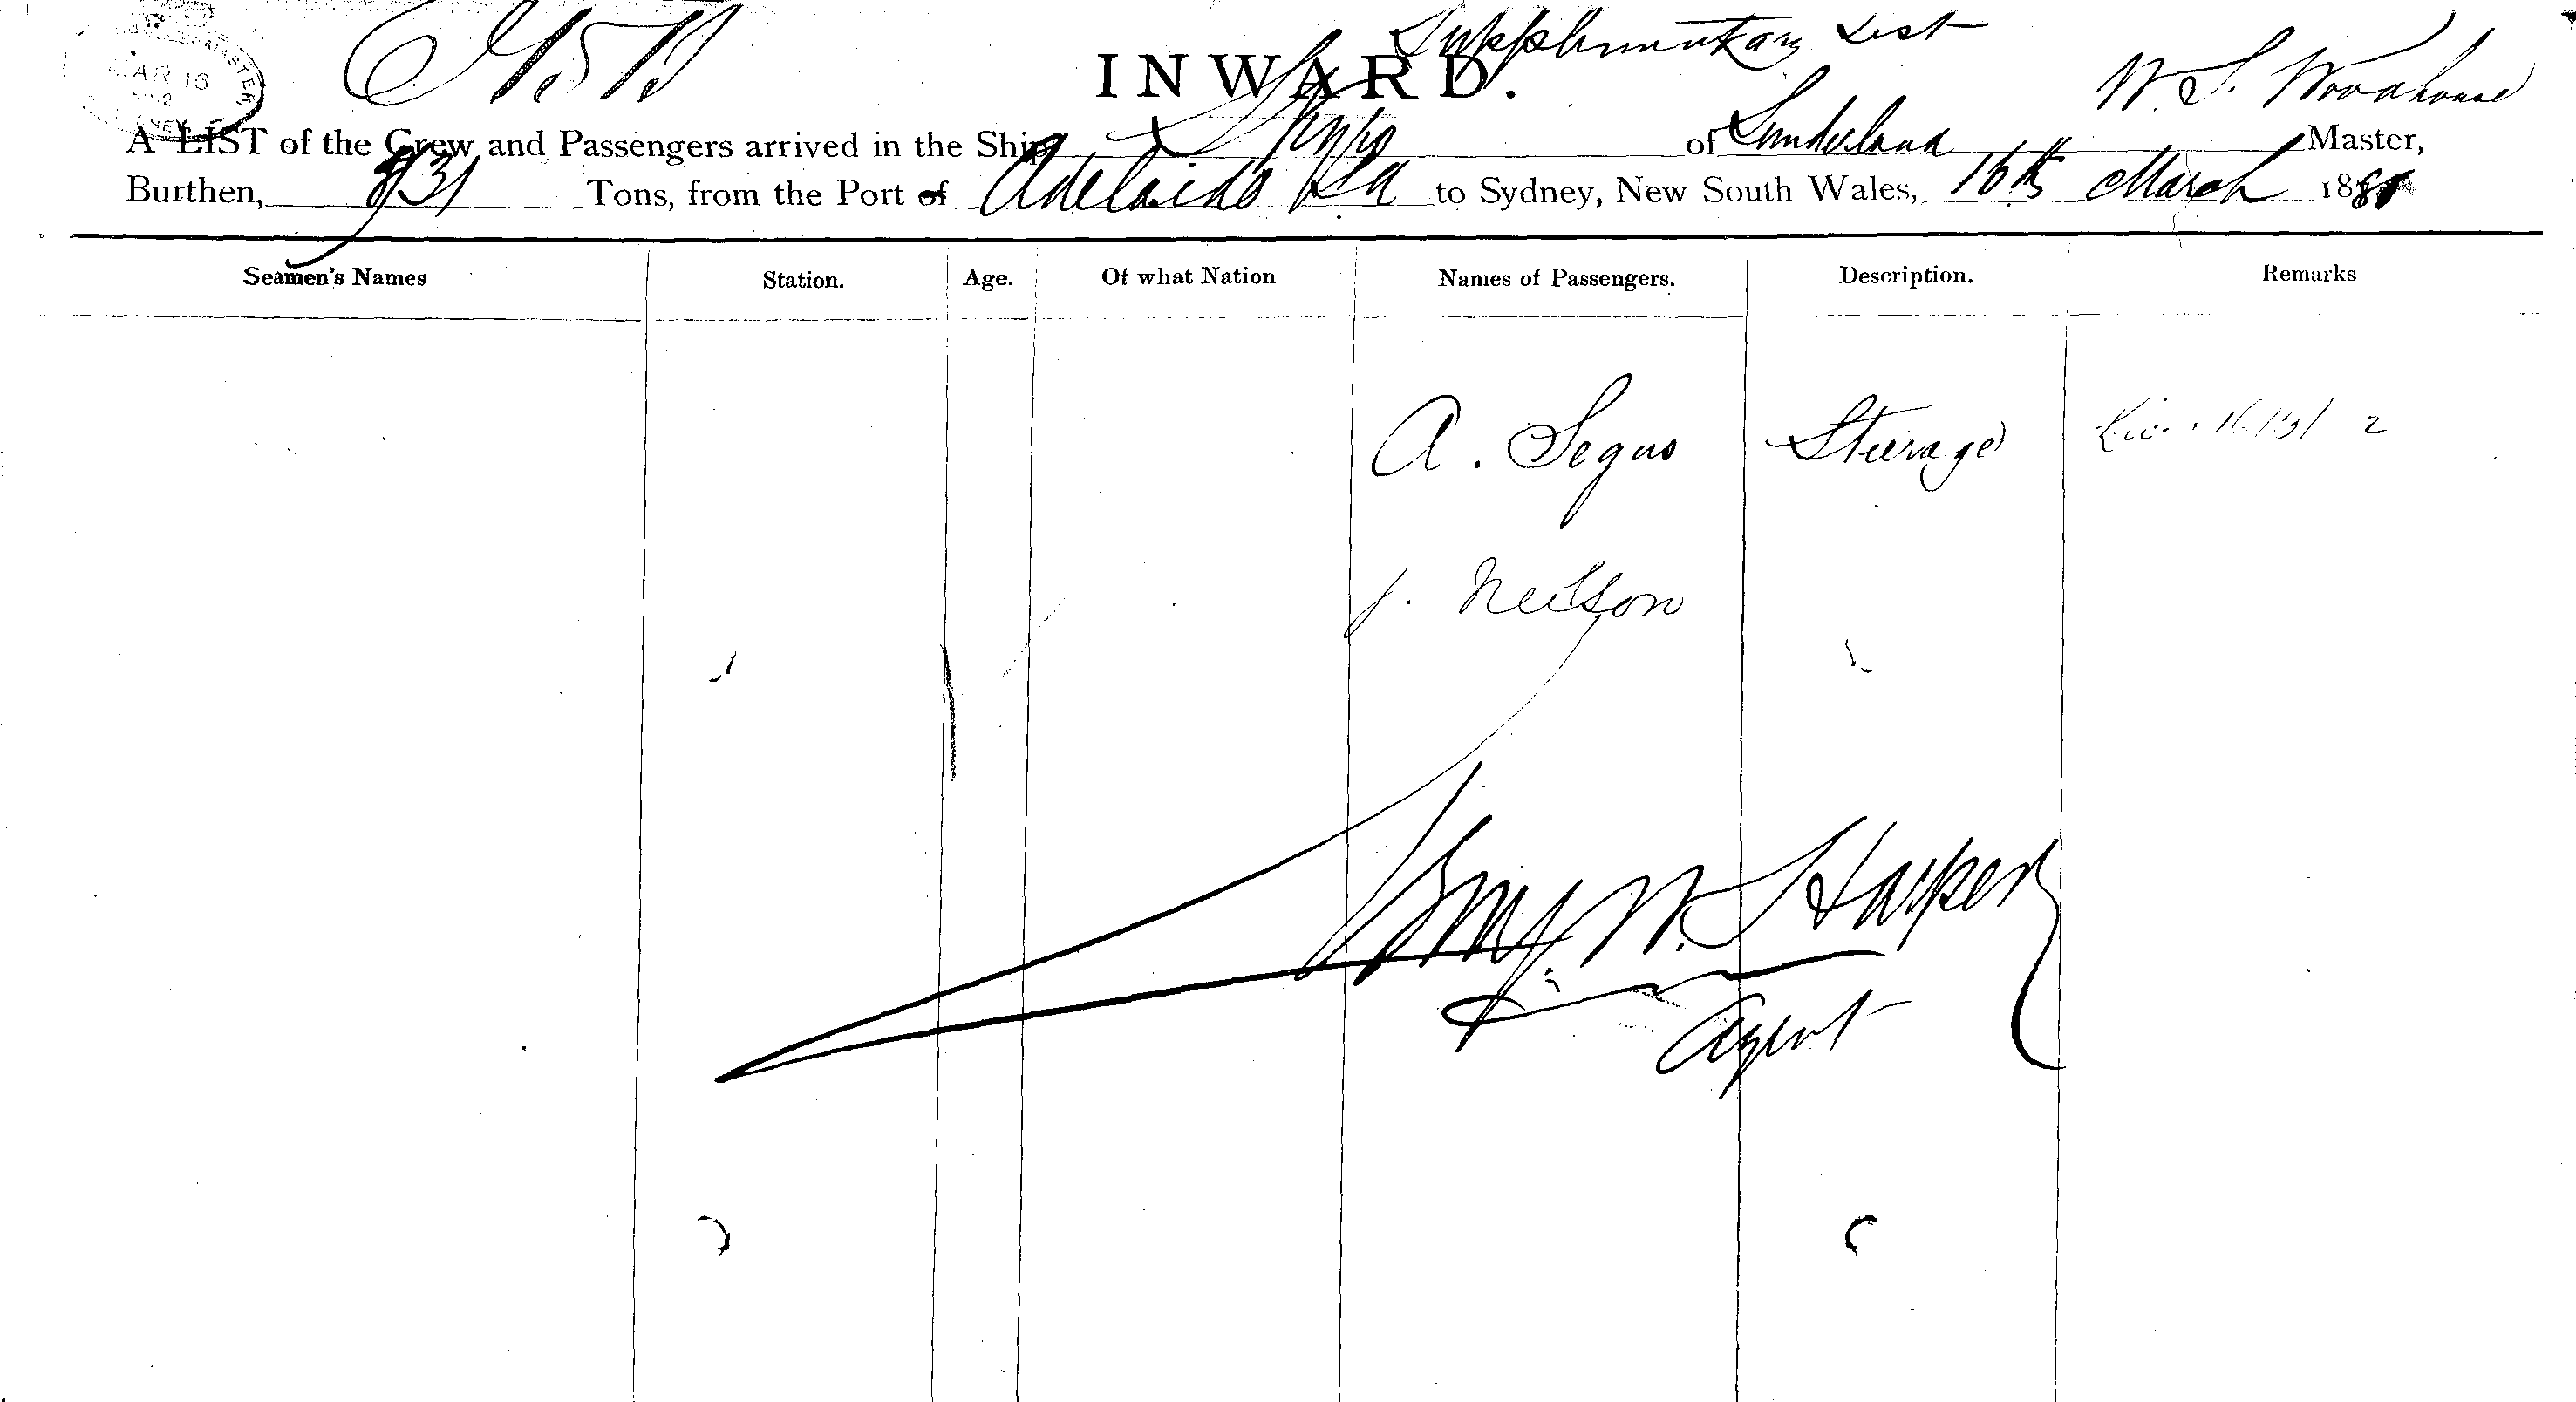 Supplementary List
INWARD.
W. S. Woodhouse
A LIST of the Crew and Passengers arrived in the Ship of Sunderland Master,
Burthen, Tons, from the Port of Adelaide SA to Sydney, New South Wales, 16th March 188
Seamen's Names Station. Age. Of what Nation Names of Passengers. Description. Remarks
A. Segus Steerage
J. Neilson
Harper
Agent